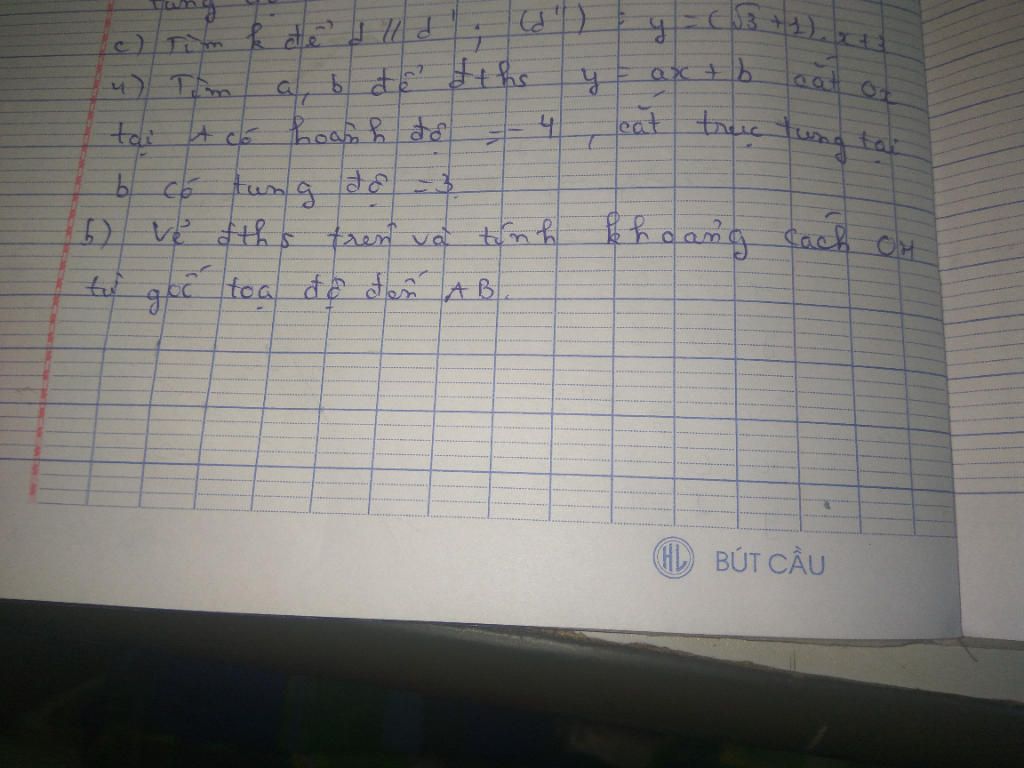 c) Tìm k để d // d' ; (d') : y = (√3 + 1).x + 3
4) Tìm a, b để đths y = ax + b cắt ox
tại A có hoành độ = - 4, cắt trục tung tại
b có tung độ = 3
b) Vẽ đths trên và tính khoảng cách OH
từ gốc toạ độ đến AB.
HL BÚT CẦU